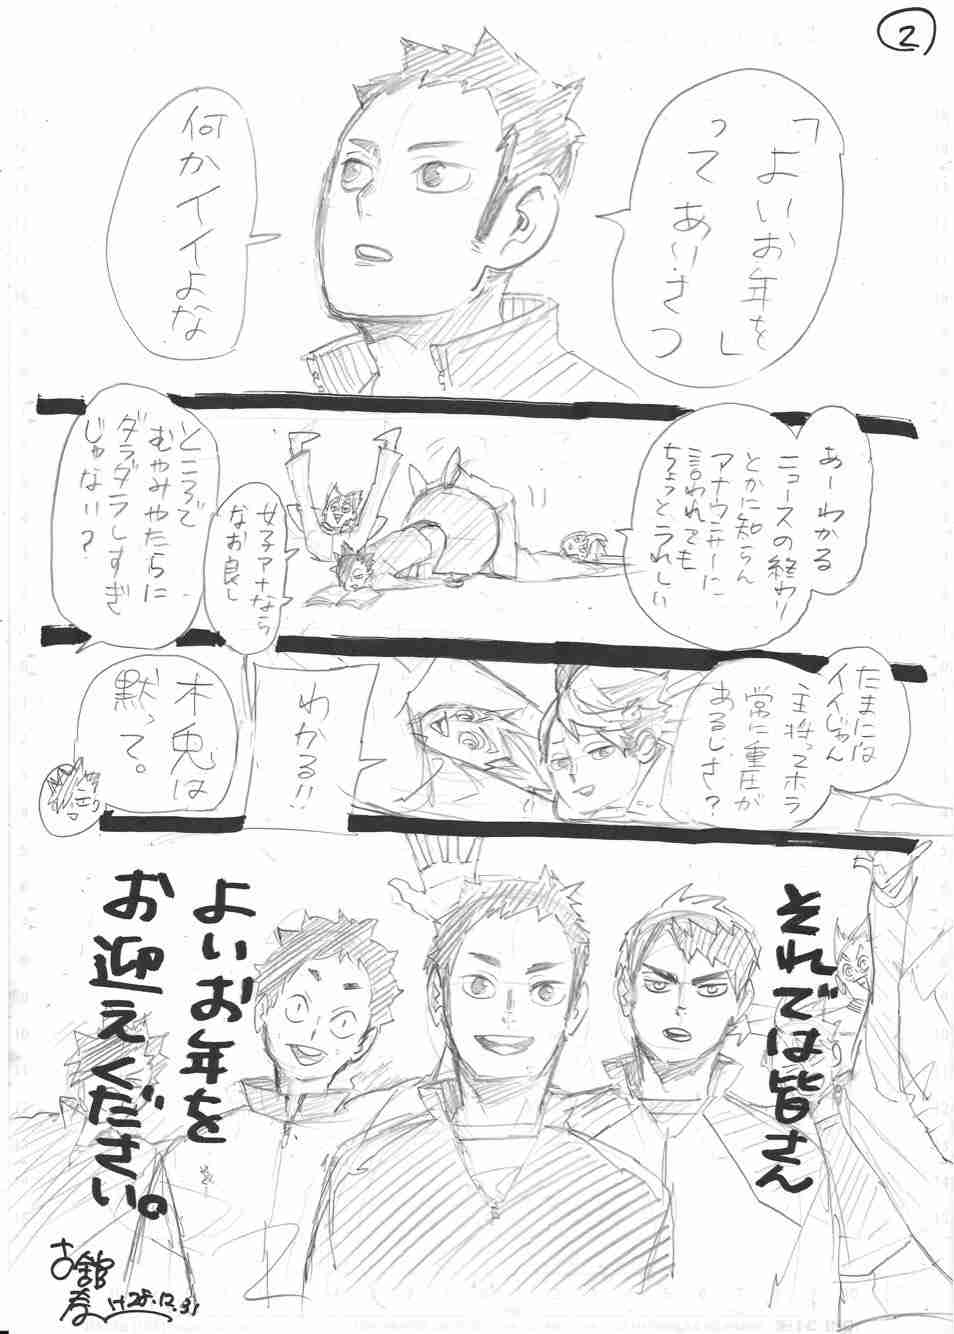 2
「よいお年を」
って
あいさつ
何かイイよな
あーわかる
ニュースの終わり
とかに知らん
アナウンサーに
言われても
ちょっとうれしい
女子アナなら
なお良し
ところで
むやみやたらに
ダラダラしすぎ
じゃない?
たまには
イイじゃん
主将ってホラ
常に重圧が
あるじさ?
わかる!!
木兎は
黙って。
それでは皆さん
よいお年を
お迎えください。
古舘
春
H28.12.31